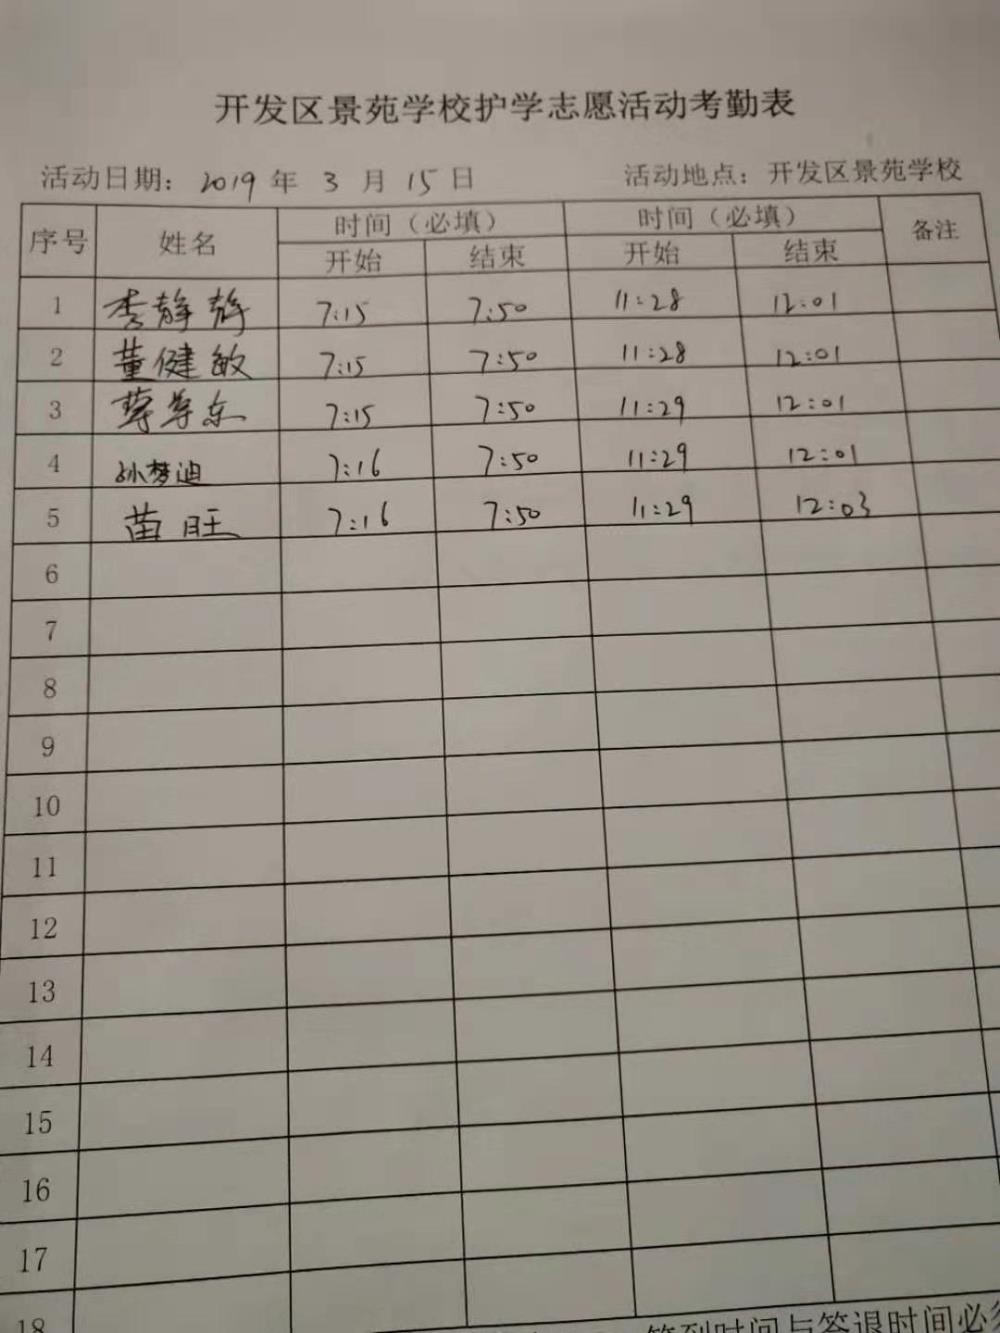 开发区景苑学校护学志愿活动考勤表
活动日期：2019年3月15日 活动地点：开发区景苑学校
序号 姓名 时间（必填） 时间（必填） 备注
开始 结束 开始 结束
1 李静静 7:15 7:50 11:28 12:01
2 董健敏 7:15 7:50 11:28 12:01
3 7:15 7:50 11:29 12:01
4 孙梦迪 7:16 7:50 11:29 12:01
5 苗旺 7:16 7:50 11:29 12:03
6
7
8
9
10
11
12
13
14
15
16
17
18
签到时间与签退时间必须